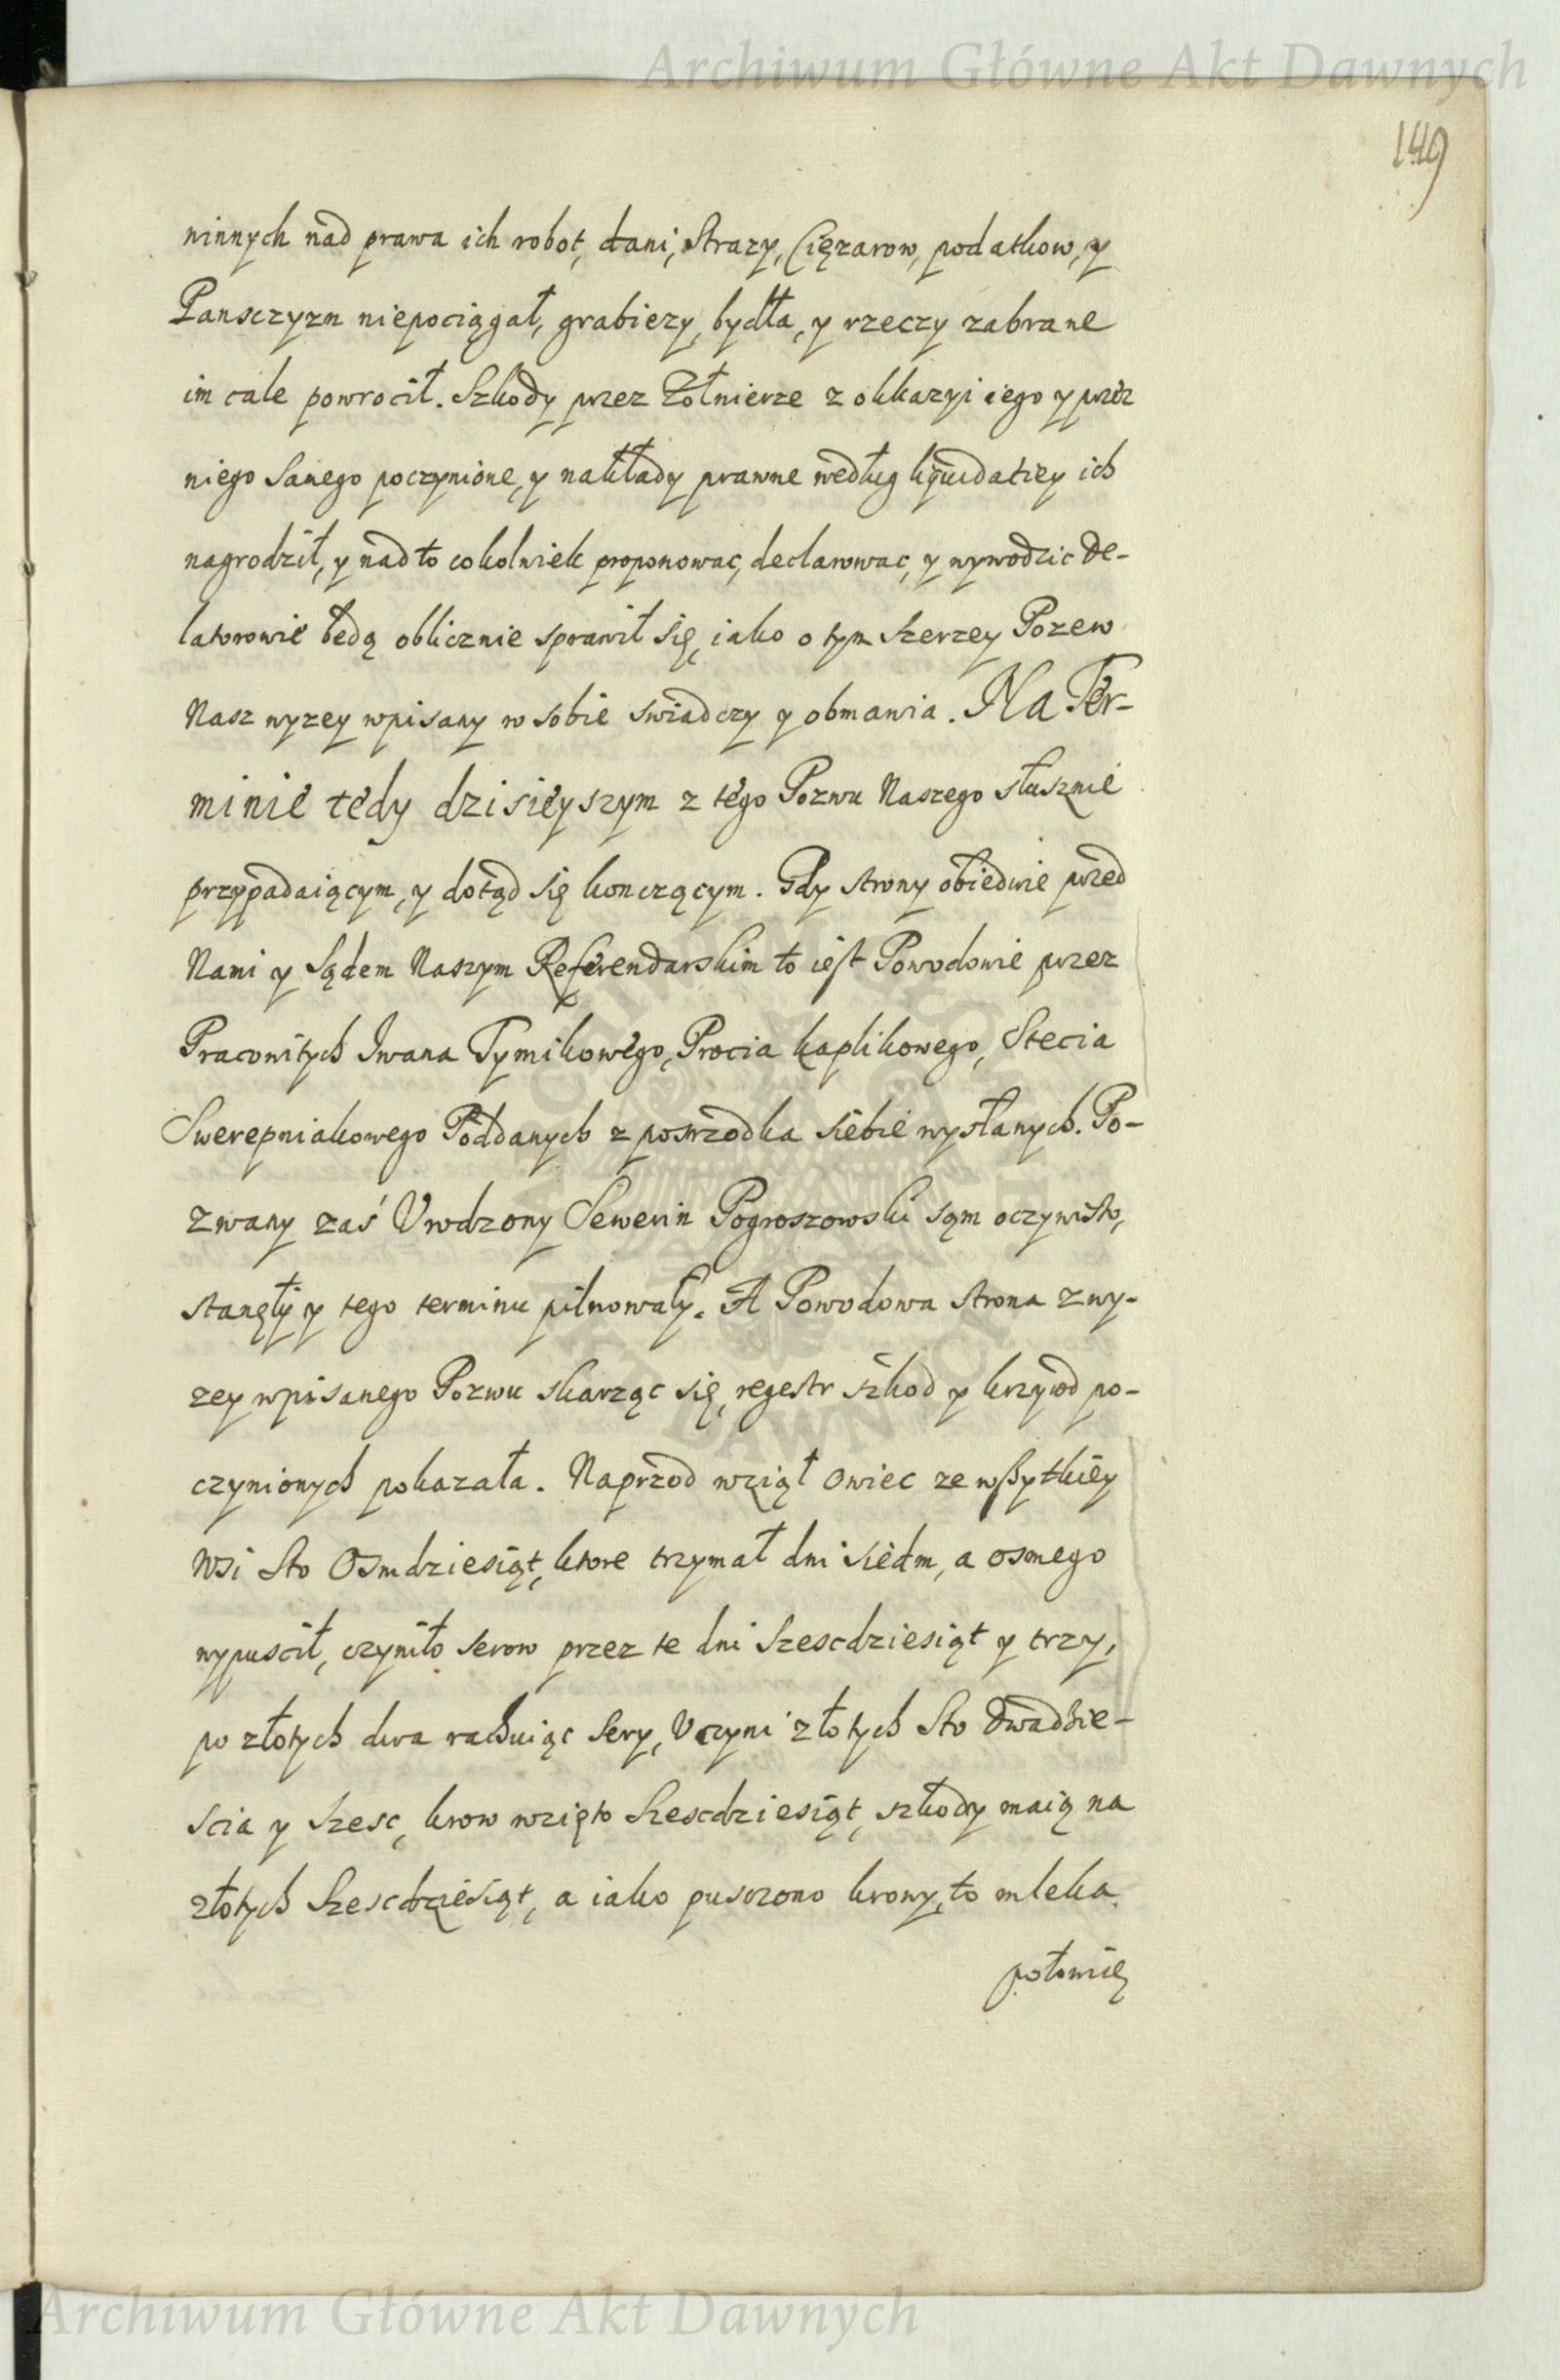 Archiwum Główne Akt Dawnych
149
winnych nad prawa ich robot, dani, Strazy, Cięzarow, podatkow, y
Pansczyzn niepociągał, grabiezy, bydła, y rzeczy zabrane
im cale powrocił. Szkody przez Zołnierze z okkazyi iego y przez
niego Samego poczynione, y nakłady prawne według liquidatiey ich
nagrodził, y nad to cokolwiek proponowac, declarowac, y wywodzic De-
latorowie będą oblicznie sprawił się, iako o tym szerzey Pozew
Nasz wyzey wpisany w sobie swiadczy y obmawia. Na Ter-
minie tedy dzisieyszym z tego Pozwu Naszego słusznie
przypadaiącym, y dotąd się konczącym. Gdy strony obiedwie przed
Nami y Sądem Naszym Referendarskim to iest Powodowie przez
Pracowitych Iwana Tymikowego, Procia kaplikowego, Stecia
Swerepniakowego Poddanych z posrzodka siebie wysłanych. Po-
zwany zaś Vrodzony Sewerin Pogroszowski sąm oczywisto,
stanęły y tego terminu pilnowały. A Powodowa strona z wy-
zey wpisanego Pozwu skarząc się, regestr szkod y krzywd po-
czynionych pokazała. Naprzod wziął owiec ze wszytkiey
Wsi Sto Osmdziesiąt, ktore trzymał dni siedm, a osmego
wypuscił, czyniło serow przez te dni Szescdziesiąt y trzy,
po złotych dwa rachuiąc sery, Vczyni złotych Sto dwadzie-
scia y szesc, krow wzięto Szescdziesiąt, szkody maią na
złotych Szescdziesiąt, a iako pusczono krowy, to mleka
połowię
Archiwum Główne Akt Dawnych